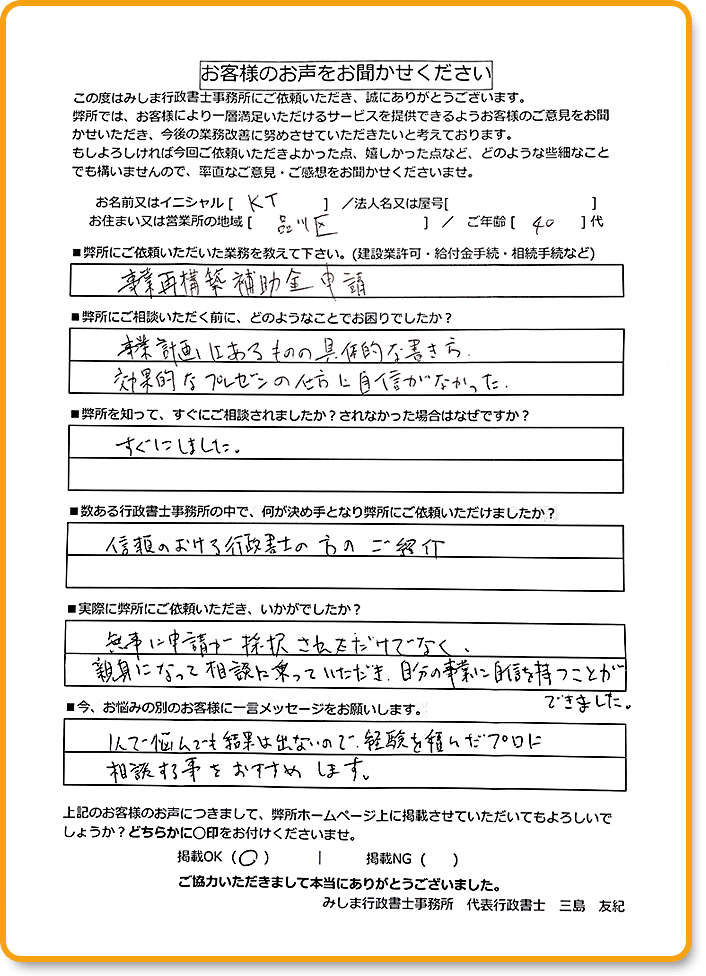 お客様のお声をお聞かせください
この度はみしま行政書士事務所にご依頼いただき、誠にありがとうございます。
弊所では、お客様により一層満足いただけるサービスを提供できるようお客様のご意見をお聞
かせいただき、今後の業務改善に努めさせていただきたいと考えております。
もしよろしければ今回ご依頼いただきよかった点、嬉しかった点など、どのような些細なこと
でも構いませんので、率直なご意見・ご感想をお聞かせくださいませ。
お名前又はイニシャル [ KT ] ／法人名又は屋号[ ]
お住まい又は営業所の地域 [ 品川区 ] ／ ご年齢 [ 40 ] 代
■弊所にご依頼いただいた業務を教えて下さい。(建設業許可・給付金手続・相続手続など)
事業再構築補助金申請
■弊所にご相談いただく前に、どのようなことでお困りでしたか？
事業計画はあるものの具体的な書き方、
効果的なプレゼンの仕方に自信がなかった。
■弊所を知って、すぐにご相談されましたか？されなかった場合はなぜですか？
すぐにしました。
■数ある行政書士事務所の中で、何が決め手となり弊所にご依頼いただけましたか？
信頼のおける行政書士の方のご紹介
■実際に弊所にご依頼いただき、いかがでしたか？
無事に申請が採択されただけでなく、
親身になって相談に乗っていただき、自分の事業に自信を持つことが
できました。
■今、お悩みの別のお客様に一言メッセージをお願いします。
1人で悩んでも結果は出ないので、経験を積んだプロに
相談する事をおすすめします。
上記のお客様のお声につきまして、弊所ホームページ上に掲載させていただいてもよろしいで
しょうか？どちらかに〇印をお付けくださいませ。
掲載OK（〇） | 掲載NG（ ）
ご協力いただきまして本当にありがとうございました。
みしま行政書士事務所 代表行政書士 三島 友紀